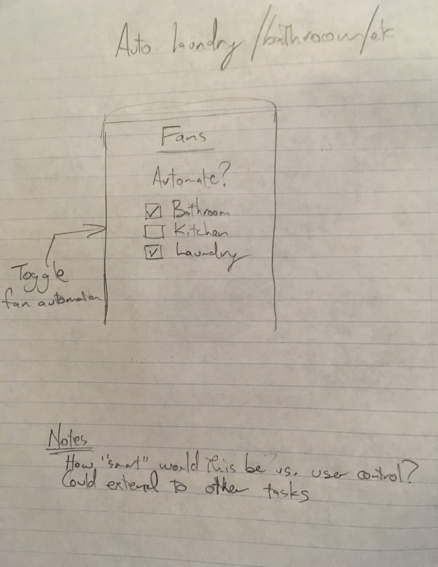 Auto laundry/bathroom/etc
Fans
Automate?
Bathroom
Kitchen
Laundry
Toggle
fan automation
Notes
How "smart" would this be vs. user control?
Could extend to other tasks